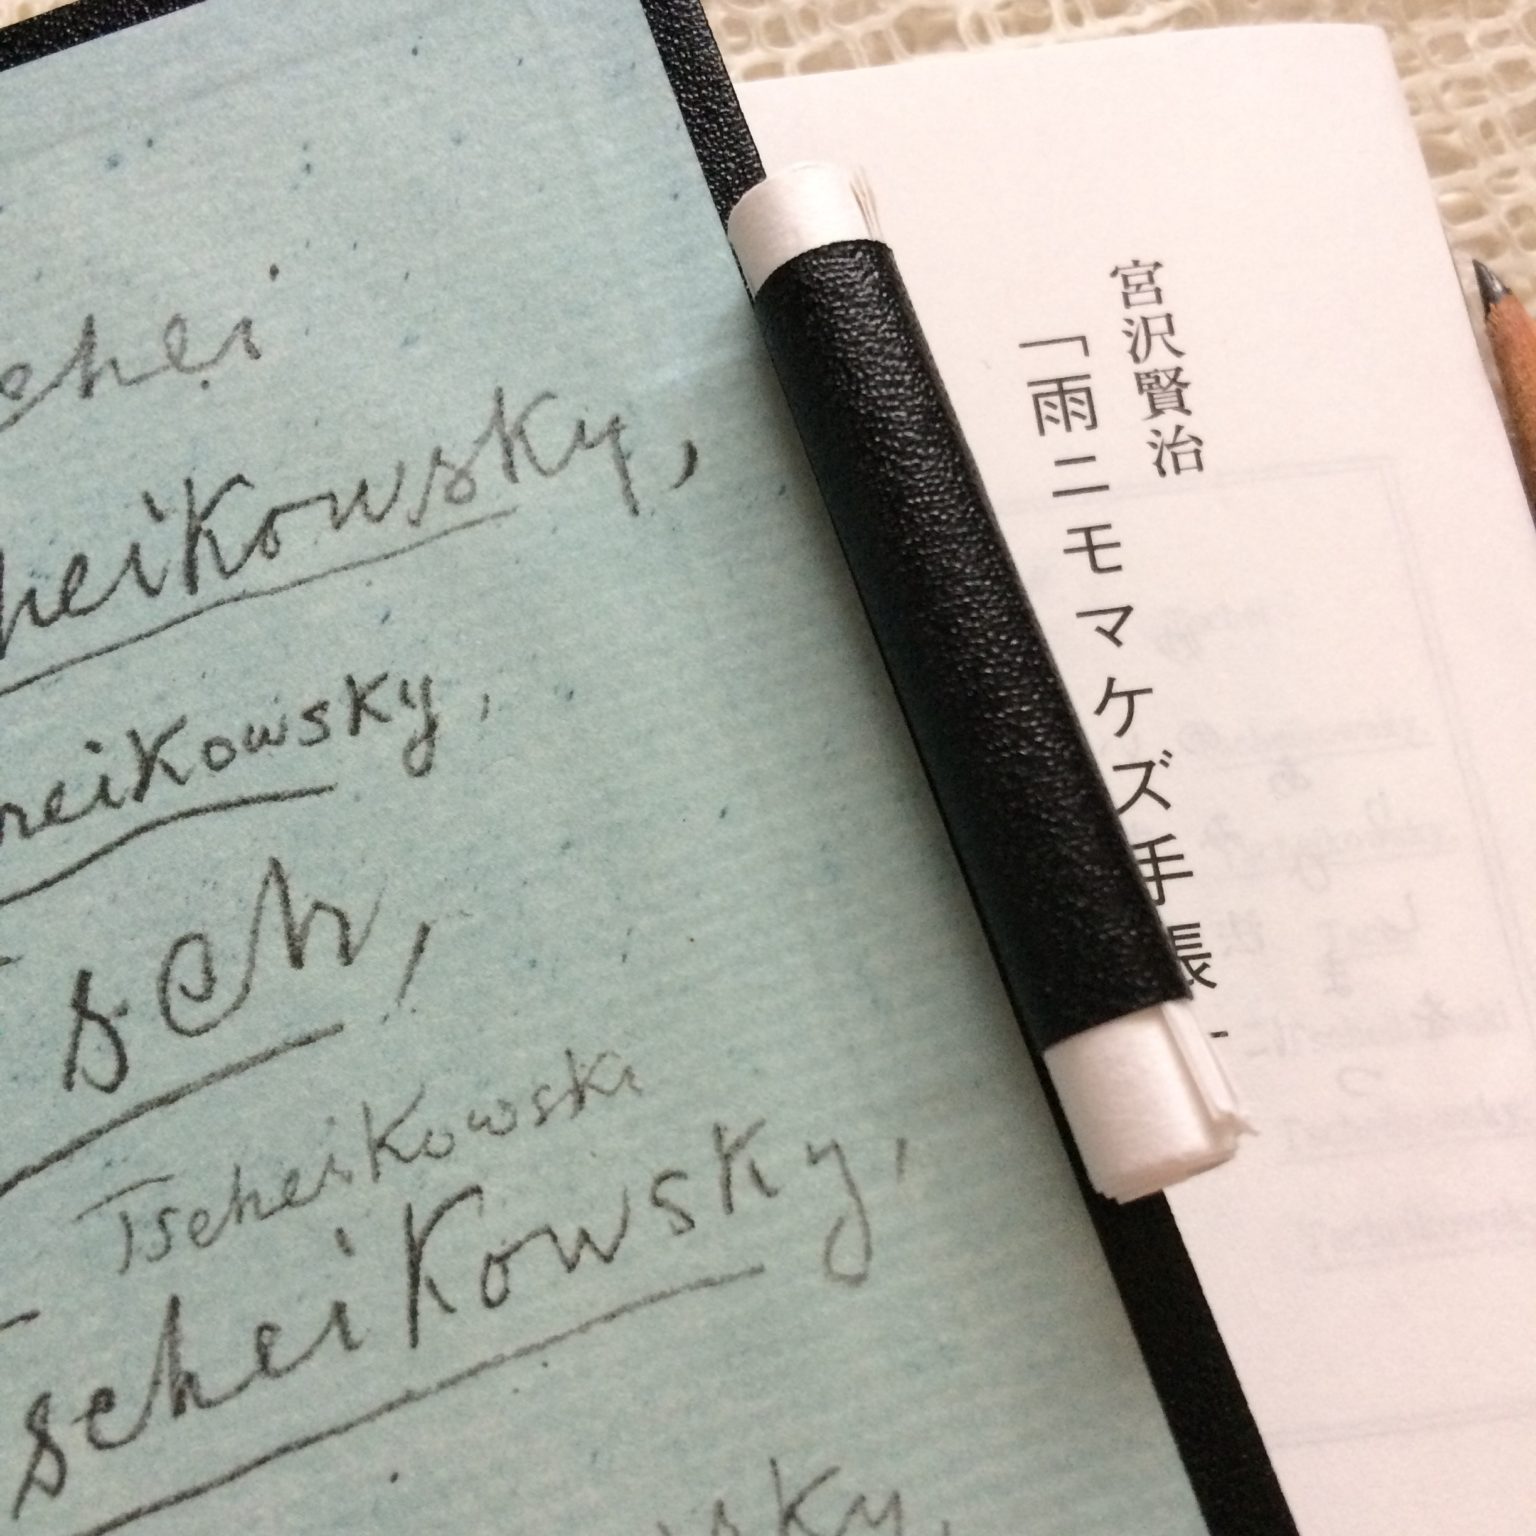 chei
heiKowsky,
heiKowsky,
sch,
TscheiKowski
scheiKowsky,
sky,
宮沢賢治
「雨ニモマケズ手帳」